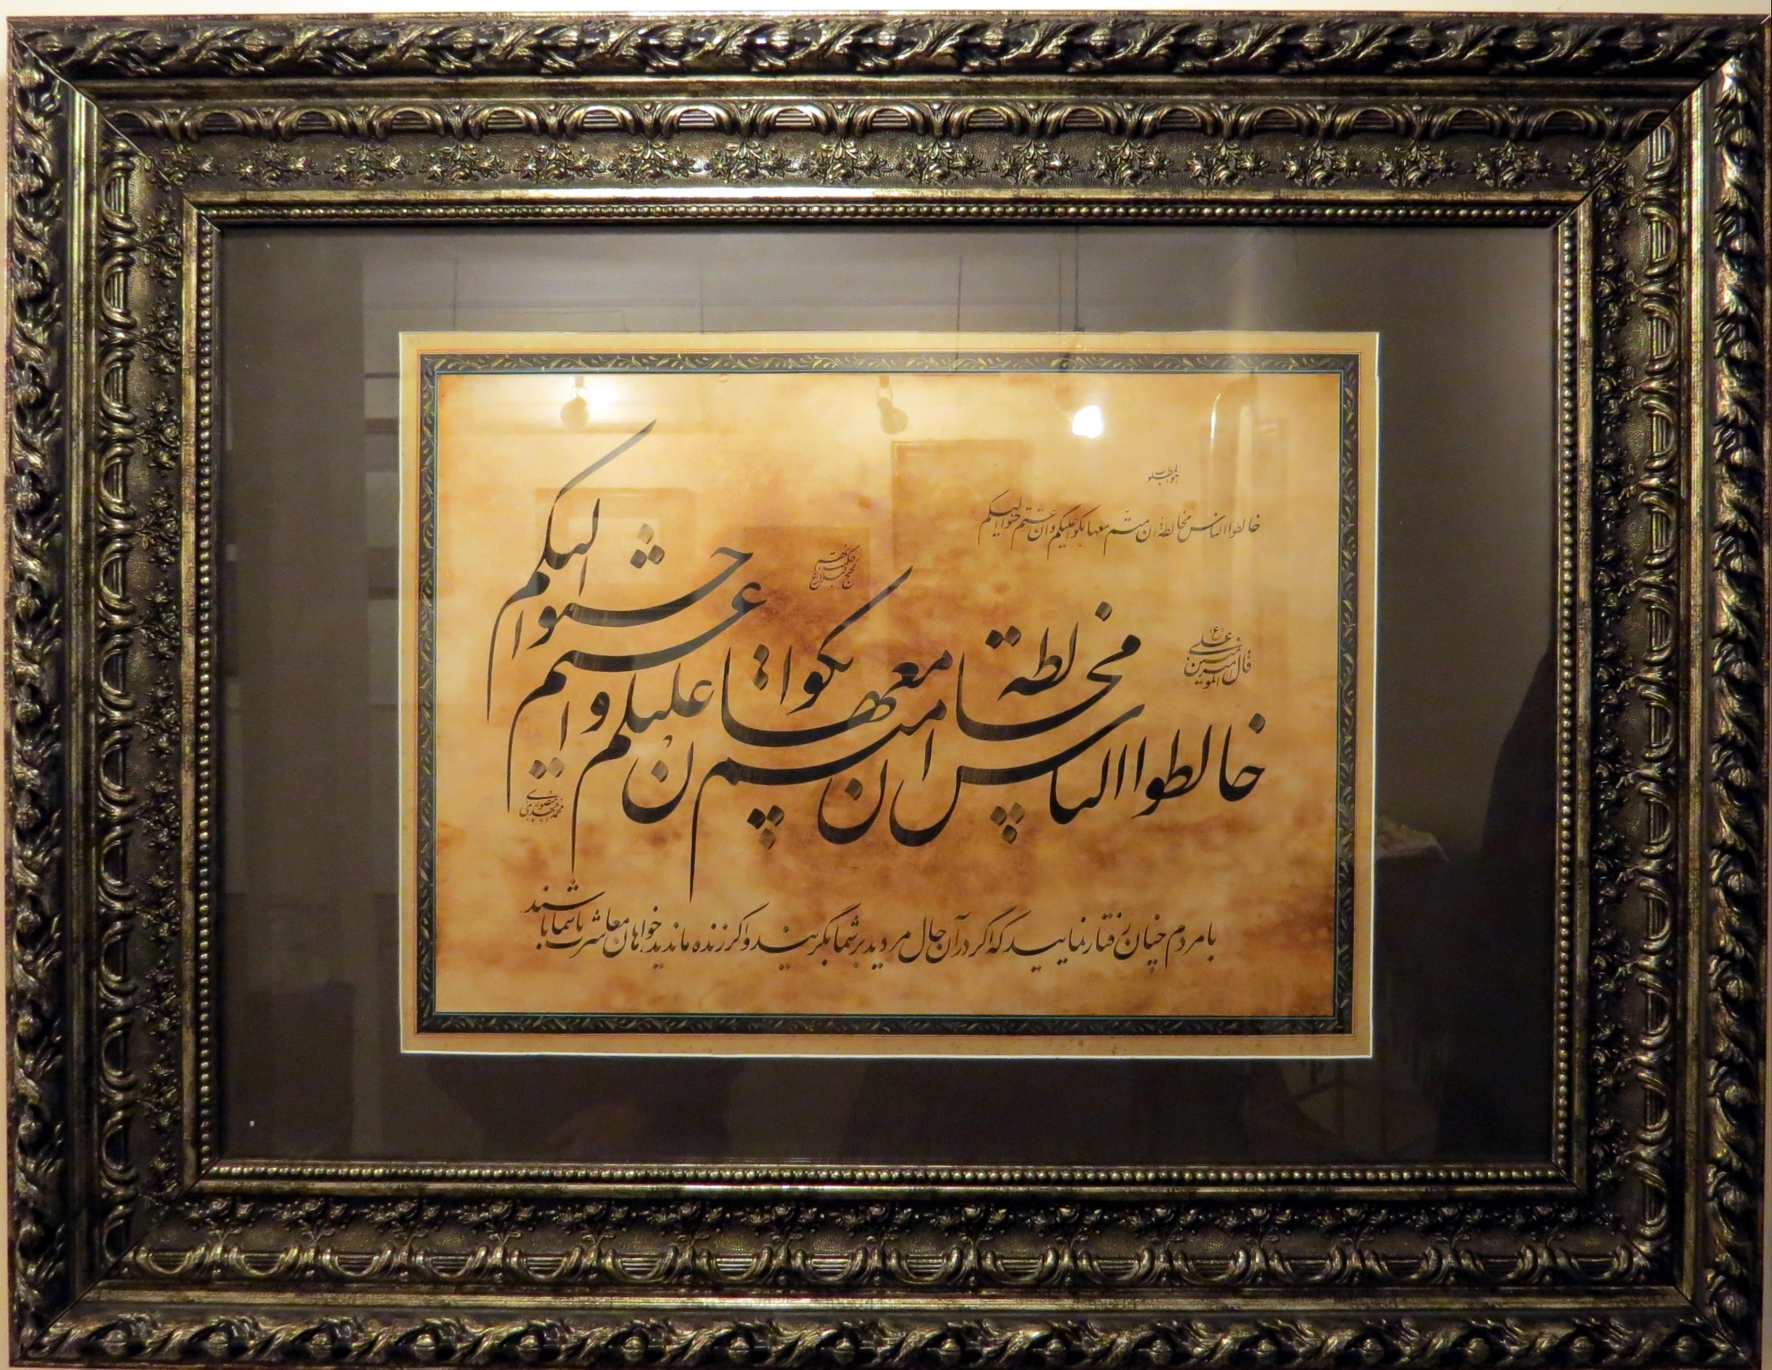 هوالمطلوب
خالطوا الناس مخالطة ان متم معها بکوا علیکم و ان عشتم حنوا الیکم
قال امیرالمومنین علی (ع)
خالطوا الناس مخالطة ان متم معها بکوا علیکم و ان عشتم حنوا الیکم
نهج البلاغه
محمد مهدی منصوری
با مردم چنان رفتار نمایید که اگر در آن حال مردید بر شما بگریند و اگر زنده ماندید خواهان معاشرت با شما باشند